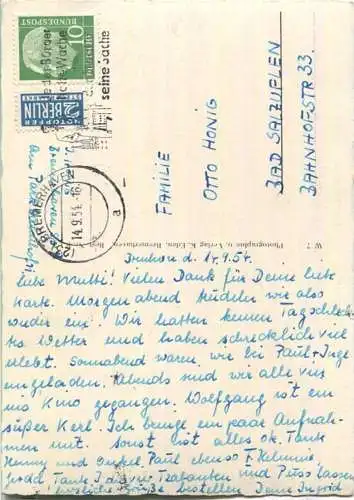 DEUTSCHE BUNDESPOST
10
NOTOPFER
2 BERLIN
STEUERMARKE
seine Sache
(23) BREMERHAVEN
14.9.54.-16
a
FAMILIE
OTTO HONIG
BAD SALZUFLEN
BAHNHOFSTR 33.
W 7 Photographie u. Verlag K. Eden, Bremerhaven
d. 14.9.54.
liebe Mutti! Vielen Dank für Deine liebe
Karte. Morgen abend trudeln wir also
wieder ein. Wir hatten keinen Tag schlech-
tes Wetter und haben schrecklich viel
erlebt. Sonnabend waren wir bei Paul + Inge
eingeladen. Abends sind wir alle vier
ins Kino gegangen. Wolfgang ist ein
süßer Kerl. Ich bringe ein paar Aufnah-
men mit. Sonst ist alles ok. Tante
Henny und Onkel Paul ebenso
Tante und lassen
herzliche Grüße bestellen. Deine Ingrid